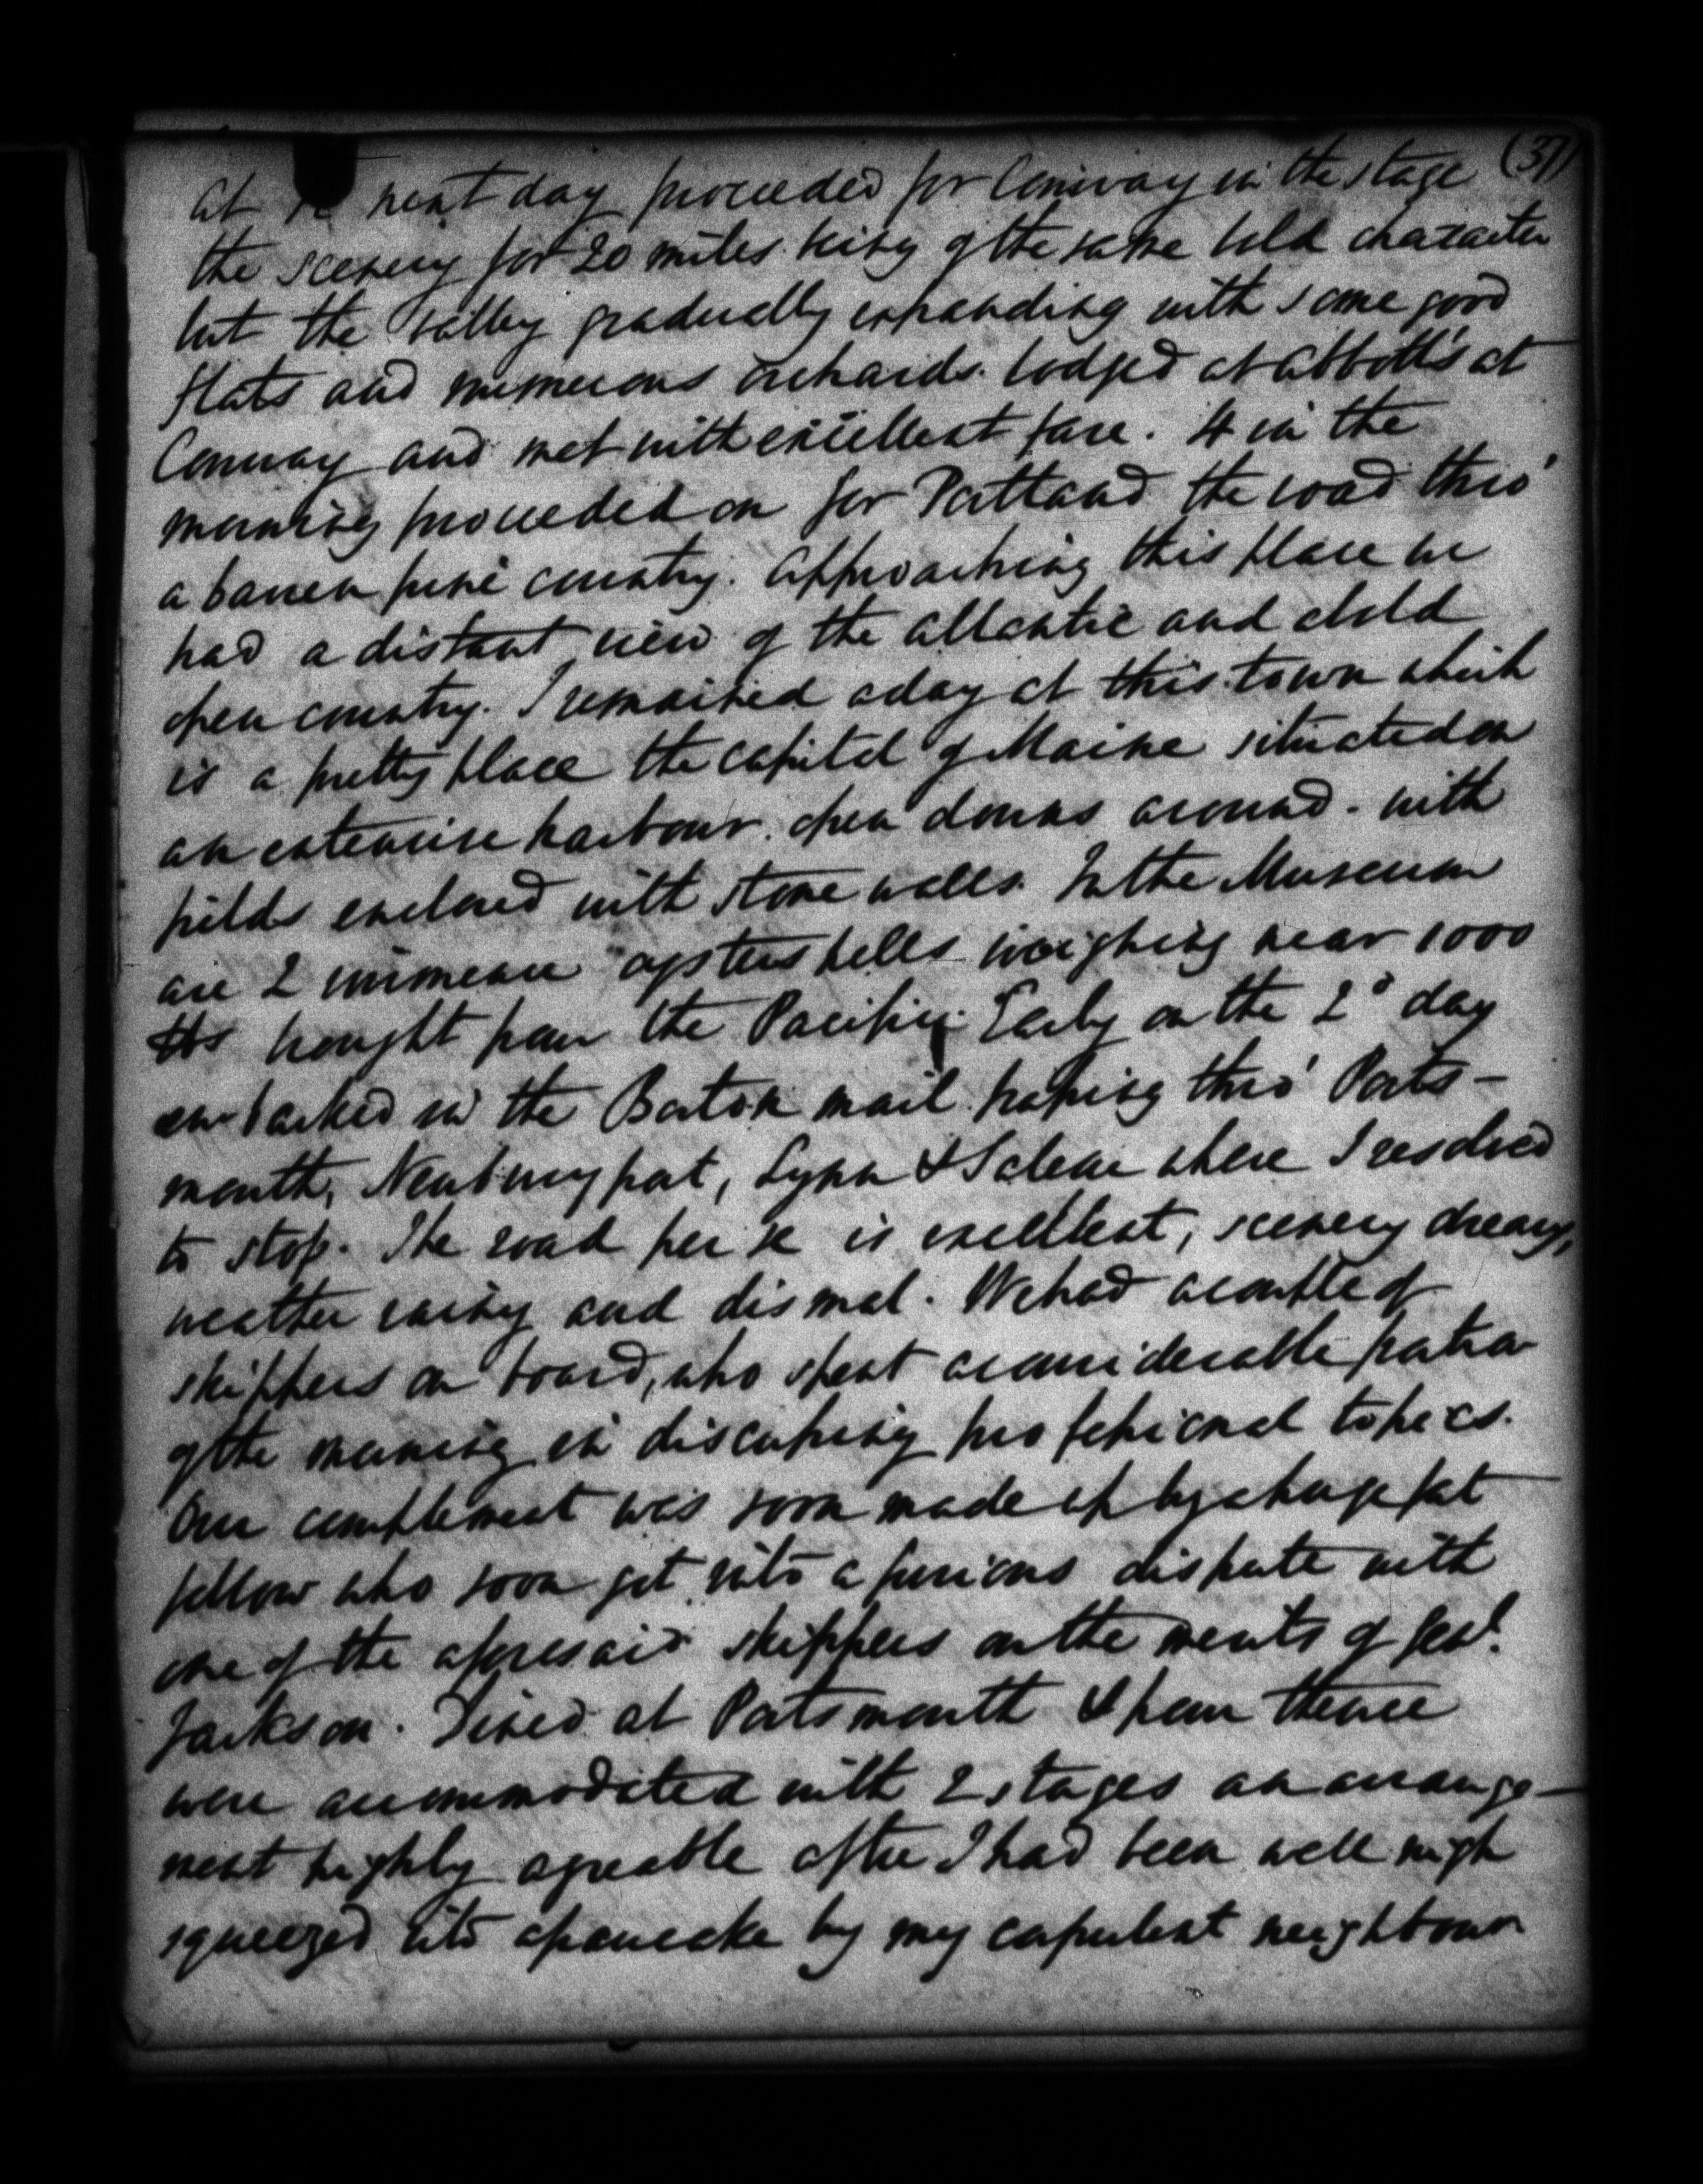 (37)
At 12 next day proceeded for Conway in the stage
the scenery for 20 miles being of the same bold character
but the valley gradually expanding with some good
flats and numerous orchards. Lodged at Abbott's at
Conway and met with excellent fare. 4 in the
morning proceeded on for Portland the road thro'
a barren pine country. Approaching this place we
had a distant view of the Atlantic and a bold
open country. I remained a day at this town which
is a pretty place the capital of Maine situated on
an extensive harbour. open downs around - with
fields enclosed with stone walls. In the Museum
are 2 immense oyster shells weighing near 1000
lbs brought from the Pacific. Early on the 2d day
embarked in the Boston mail passing thro' Ports-
mouth, Newburyport, Lynn & Salem where I resolved
to stop. The road per se is excellent, scenery dreary,
weather rainy and dismal. We had a couple of
skippers on board, who spent a considerable portion
of the morning in discussing professional topics.
Our complement was soon made up by a huge fat
fellow who soon got into a furious dispute with
one of the aforesaid skippers on the merits of Genl.
Jackson. Dined at Portsmouth & from thence
were accommodated with 2 stages an arrange-
ment highly agreable after I had been well nigh
squeezed into a pancake by my corpulent neighbour